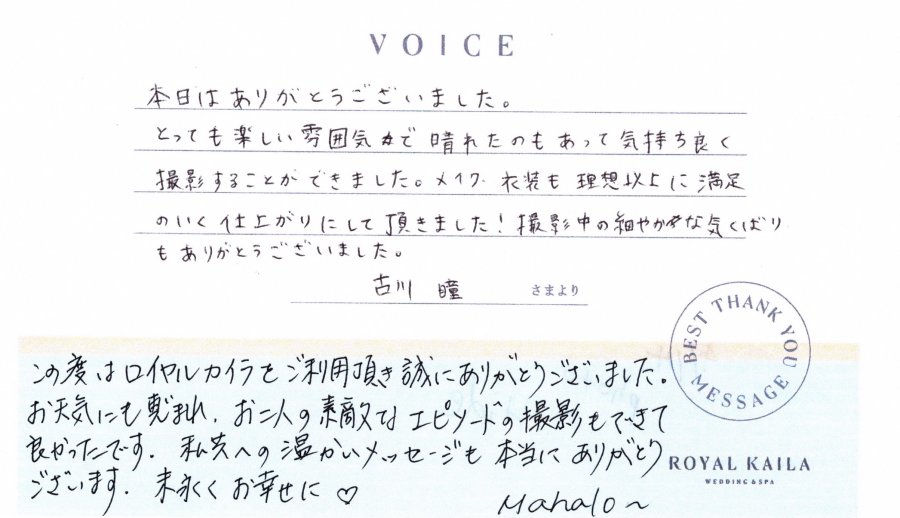 VOICE
本日はありがとうございました。
とっても楽しい雰囲気で晴れたのもあって気持ち良く
撮影することができました。メイク・衣装も理想以上に満足
のいく仕上がりにして頂きました！撮影中の細やかな気くばり
もありがとうございました。
古川 瞳 さまより
BEST THANK YOU MESSAGE
この度はロイヤルカイラをご利用頂き誠にありがとうございました。
お天気にも恵まれ、お二人の素敵なエピソードの撮影もできて
良かったです。私共への温かいメッセージも本当にありがとう
ございます。末永くお幸せに♡
Mahalo～
ROYAL KAILA
WEDDING & SPA